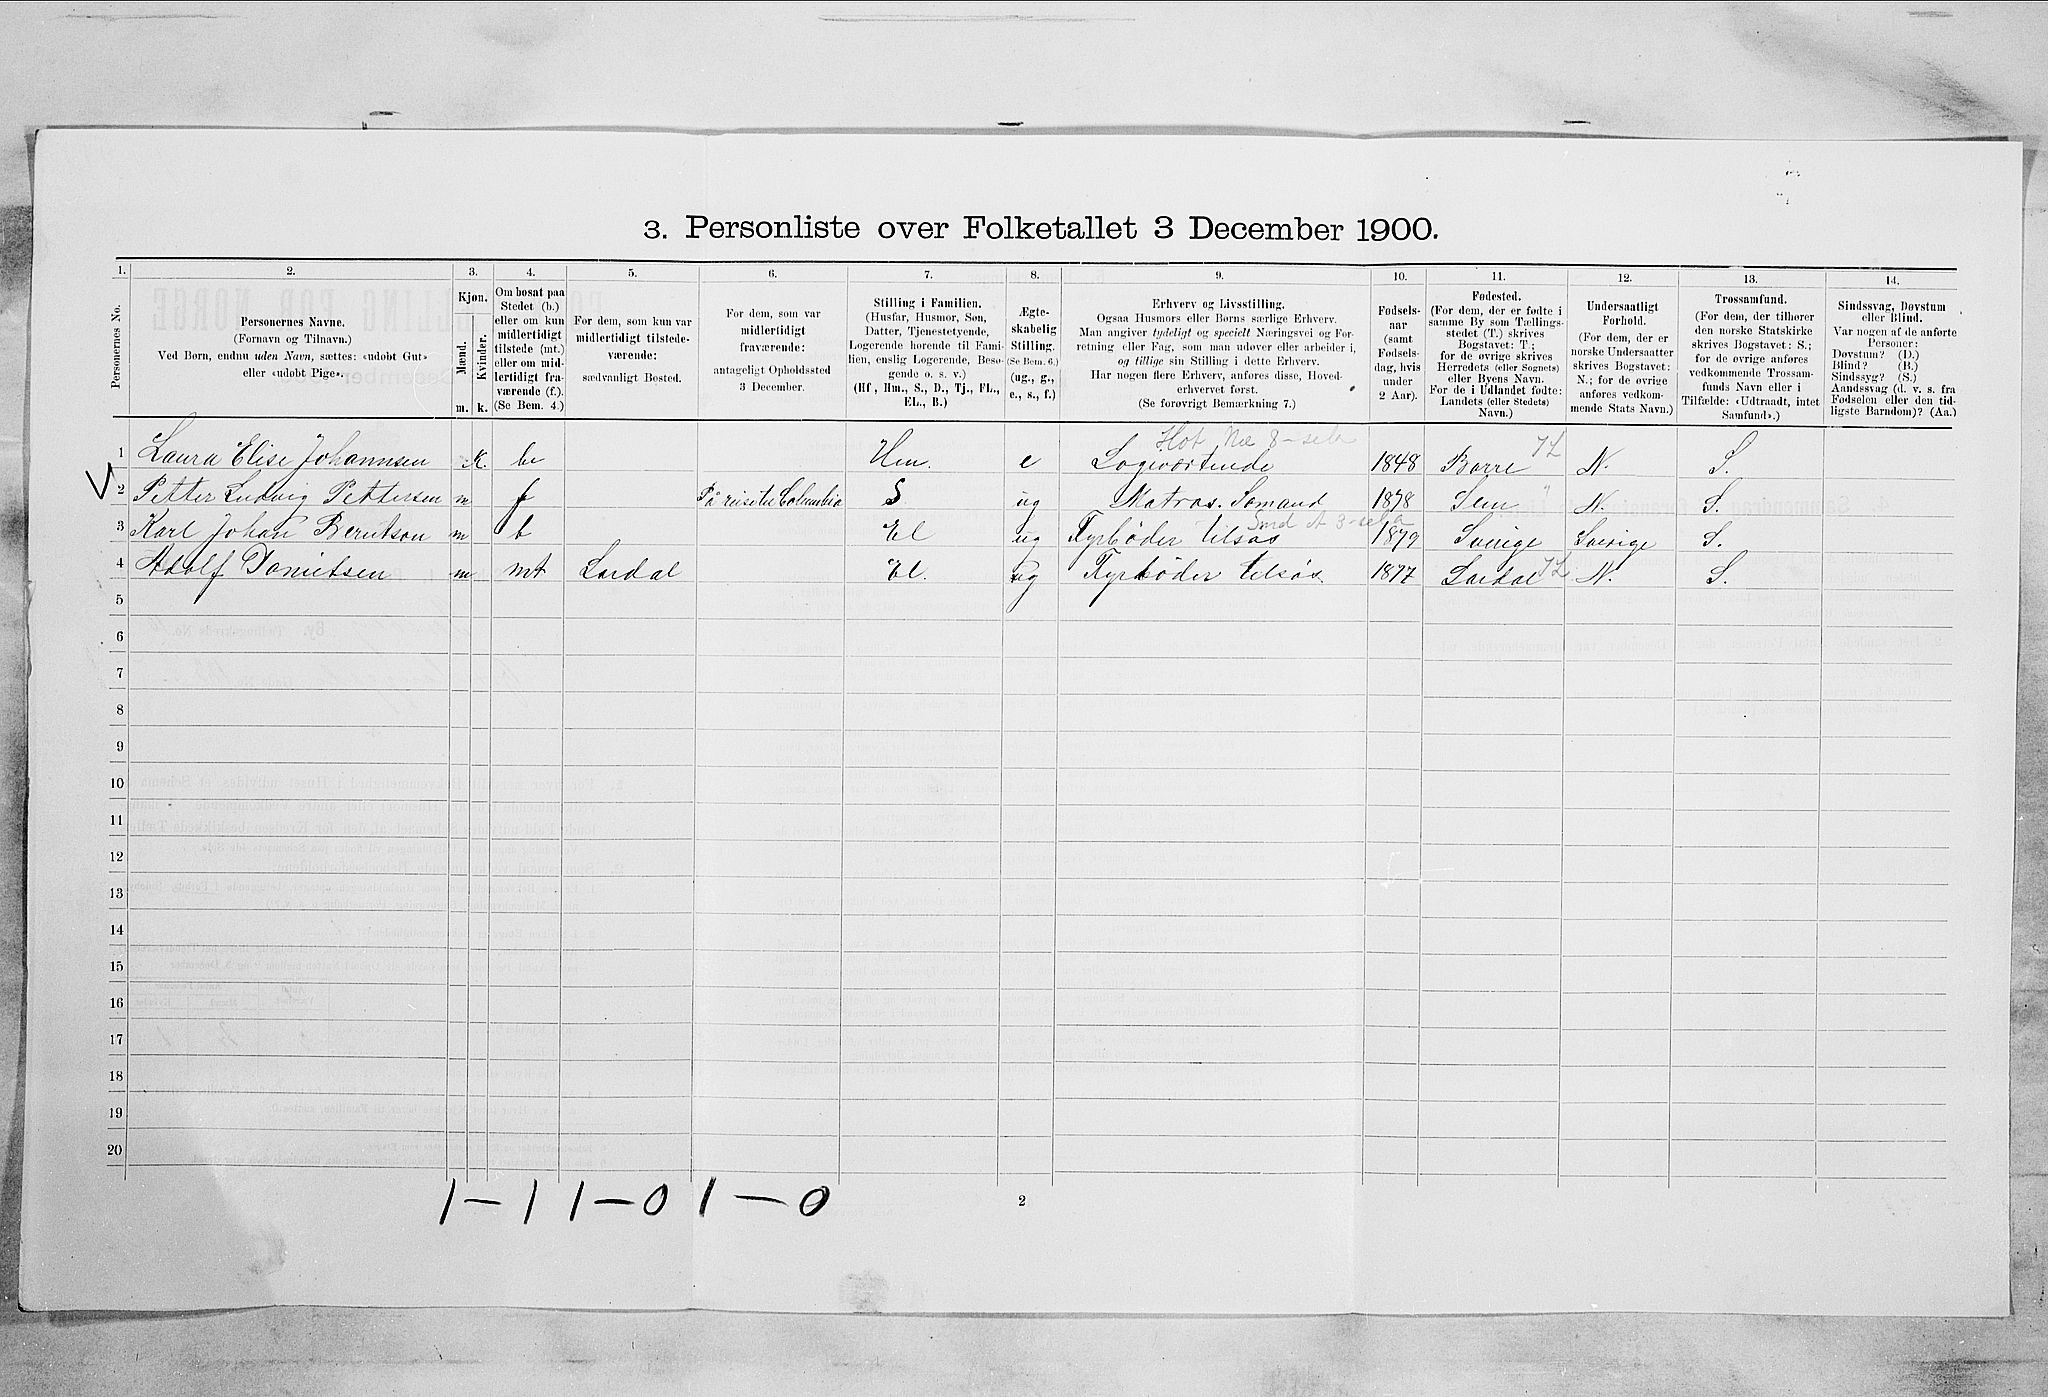 3. Personliste over Folketallet 3 December 1900.
1. 2. 3. 4. 5. 6. 7. 8. 9. 10. 11. 12. 13. 14.
Personernes No.
Personernes Navne.
(Fornavn og Tilnavn.)
Ved Børn, endnu uden Navn, sættes: «udøbt Gut»
eller «udøbt Pige».
Kjøn.
Mænd.
Kvinder.
m. k.
Om bosat paa
Stedet (b.)
eller om kun
midlertidigt
tilstede (mt.)
eller om mid-
lertidigt fra-
værende (f.).
(Se Bem. 4.)
For dem, som kun var
midlertidigt tilstede-
værende:
sædvanligt Bosted.
For dem, som var
midlertidigt
fraværende:
antageligt Opholdssted
3 December.
Stilling i Familien.
(Husfar, Husmor, Søn,
Datter, Tjenestetyende,
Logerende hørende til Fami-
lien, enslig Logerende, Besø-
gende o. s. v.)
(Hf., Hm., S., D., Tj., FL.,
EL., B.)
Ægte-
skabelig
Stilling.
(Se Bem. 6.)
(ug., g.,
e., s., f.)
Erhverv og Livsstilling.
Ogsaa Husmors eller Børns særlige Erhverv.
Man angiver tydeligt og specielt Næringsvei og For-
retning eller Fag, som man udøver eller arbeider i,
og tillige sin Stilling i dette Erhverv.
Har nogen flere Erhverv, anføres disse, Hoved-
erhvervet først.
(Se forøvrigt Bemærkning 7.)
Fødsels-
aar
(samt
Fødsels-
dag, hvis
under
2 Aar).
Fødested.
(For dem, der er fødte i
samme By som Tællings-
stedet (T.) skrives
Bogstavet: T.;
for de øvrige skrives
Herredets (eller Sognets)
eller Byens Navn.
For de i Udlandet fødte:
Landets (eller Stedets)
Navn.)
Undersaatligt
Forhold.
(For dem, der er
norske Undersaatter
skrives Bogstavet:
N.; for de øvrige
anføres vedkom-
mende Stats Navn.)
Trossamfund.
(For dem, der tilhører
den norske Statskirke
skrives Bogstavet: S.;
for de øvrige anføres
vedkommende Trossam-
funds Navn eller i
Tilfælde: «Udtraadt, intet
Samfund».)
Sindssvag, Døvstum
eller Blind.
Var nogen af de anførte
Personer:
Døvstum? (D.)
Blind? (B.)
Sindssyg? (S.)
Aandssvag (d. v. s. fra
Fødselen eller den tid-
ligste Barndom)? (Aa.)
1 Laura Elise Johannsen K. b Hm. e Logiværtinde 1848 Borre N. S.
2 Petter Ludvig Pettersen m f På reise til Columbia S ug Matros. Sømand 1878 Sem N. S.
3 Karl Johan Berntson m b El ug Fyrbøder tilsøs 1879 Sverige Sverige S.
4 Adolf Danielsen m mt Lardal El. ug Fyrbøder tilsøs. 1877 Lardal N. S.
5
6
7
8
9
10
11
12
13
14
15
16
17
18
19
20
1–1 1–0 1–0
2